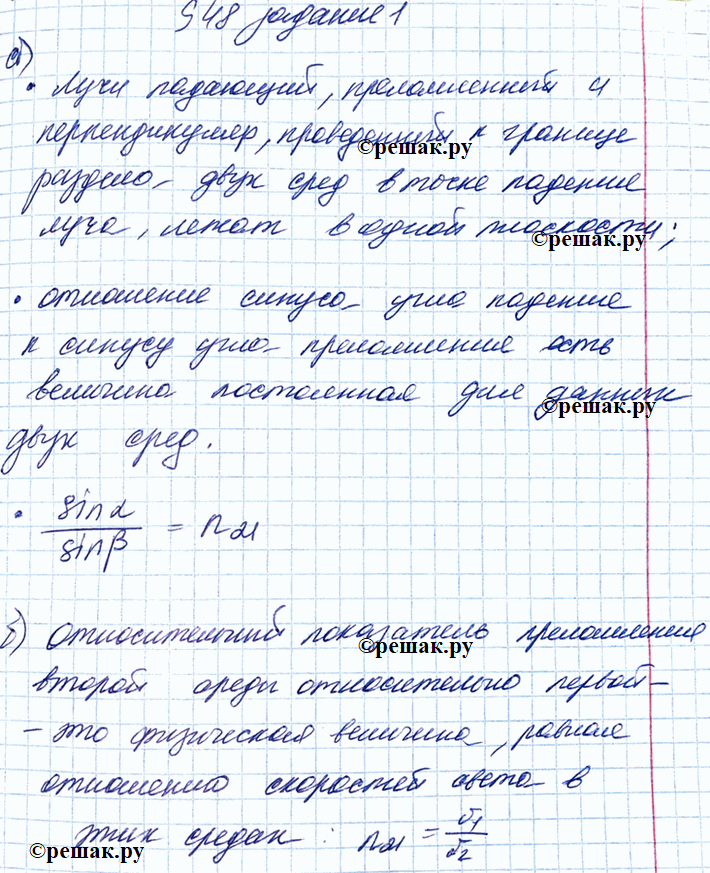 §48 задание 1
а)
• Лучи падающий, преломленный и
перпендикуляр, проведенный к границе
©решак.ру
раздела двух сред в точке падения
луча, лежат в одной плоскости;
©решак.ру
• отношение синуса угла падения
к синусу угла преломления есть
величина постоянная для данных
©решак.ру
двух сред.
• sinα / sinβ = n21
б) Относительный показатель преломления
©решак.ру
второй среды относительно первой –
– это физическая величина, равная
отношению скоростей света в
этих средах: n21 = v1 / v2
©решак.ру